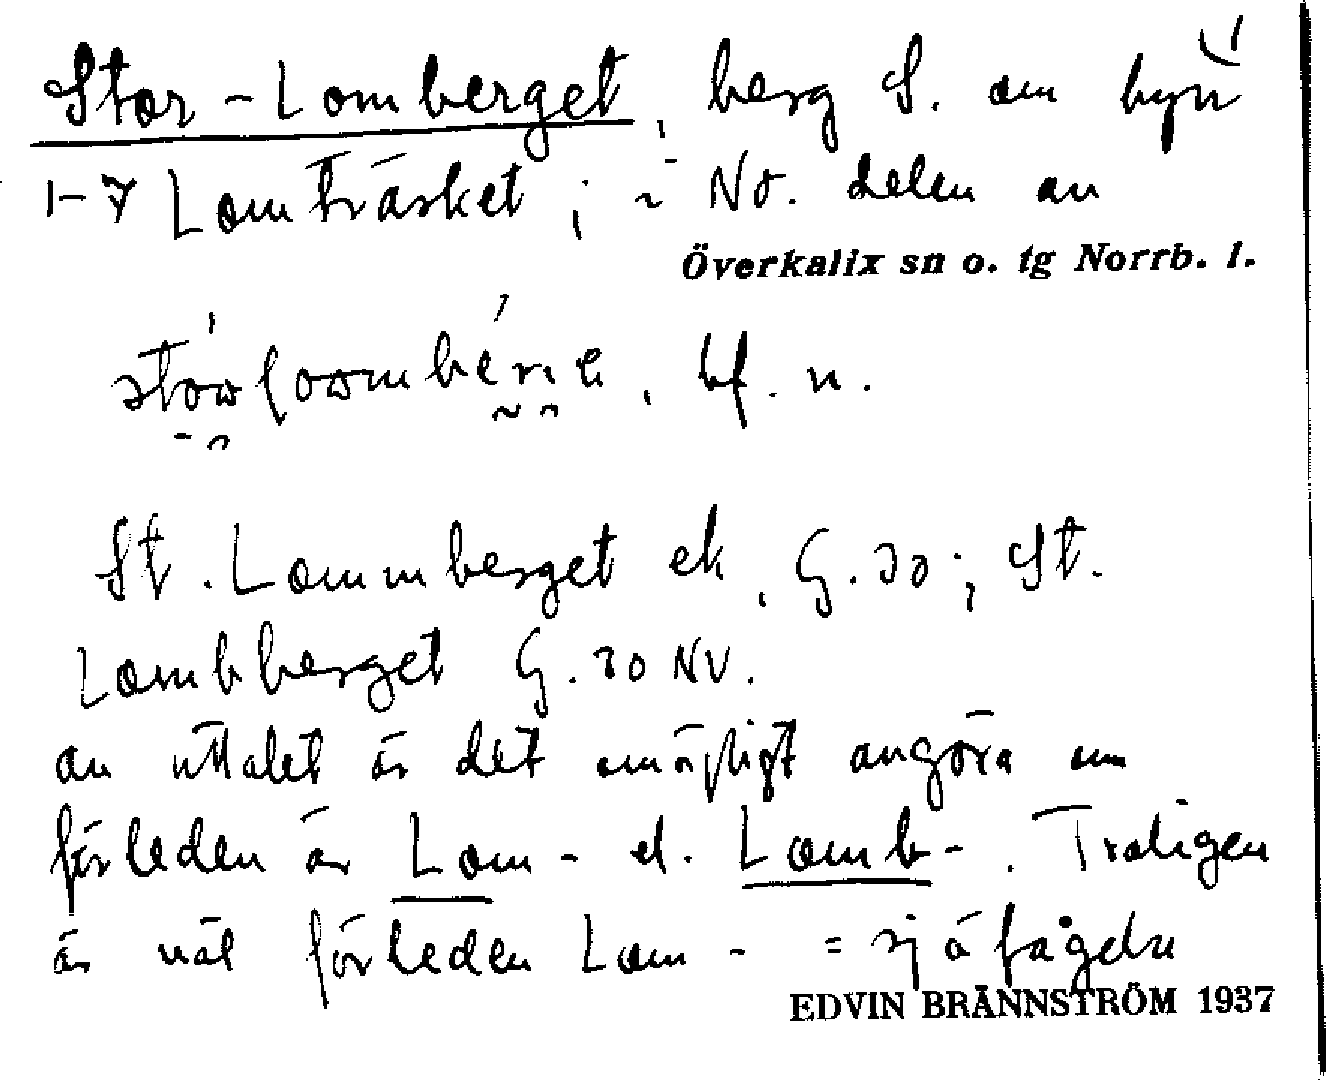 Stor-Lomberget, berg S. om byn
1-7 Lomträsket; i NO. delen av
Överkalix sn o. tg Norrb. l.
bf. n.
St. Lommberget ek, G. 30; St.
Lombberget G. 30 NV.
av uttalet är det omöjligt avgöra om
förleden är Lom- el. Lomb-. Troligen
är väl förleden Lom- = sjöfågeln
EDVIN BRÄNNSTRÖM 1937